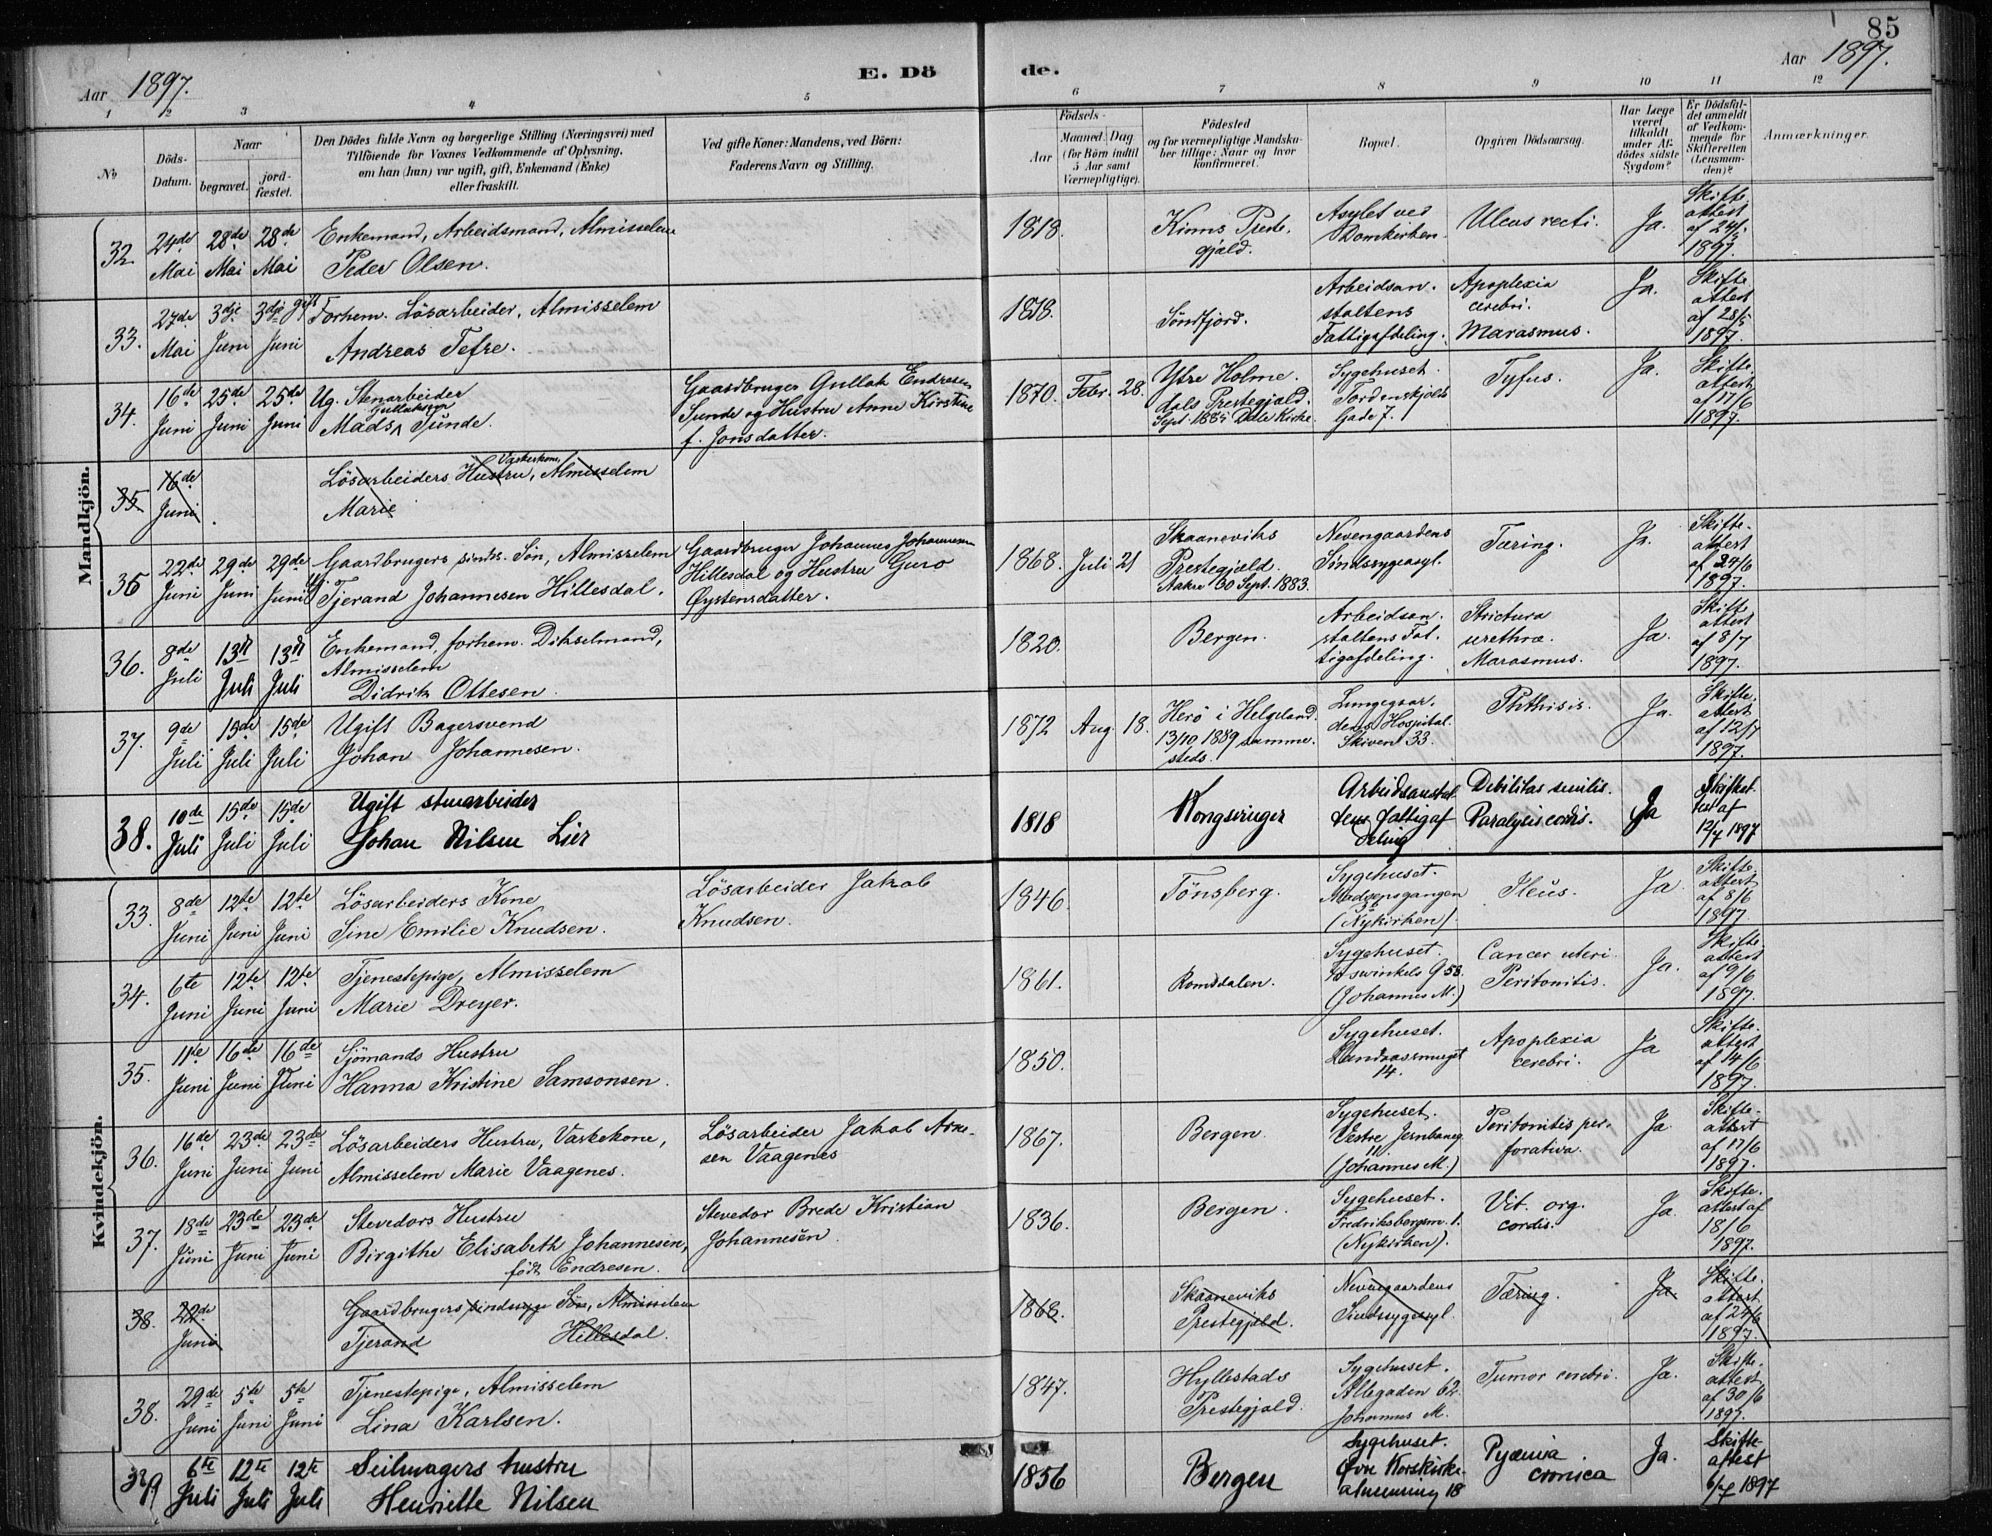 85
Aar 1897.
E. Dö
de.
Aar 1897.
1 2 3 4 5 6 7 8 9 10 11 12
№
Döds-
Datum.
Naar
begravet.
jord-
fæstet.
Den Dödes fulde Navn og borgerlige Stilling (Næringsvei) med
Tilföiende for Voxnes Vedkommende af Oplysning,
om han (hun) var ugift, gift, Enkemand (Enke)
eller fraskilt.
Ved gifte Koner: Mandens, ved Börn:
Faderens Navn og Stilling.
Födsels-
Aar
Maaned. Dag
(for Börn indtil
5 Aar samt
Værnepligtige).
Födested
og for værnepligtige Mandsku-
ber tillige: Naar og hvor
konfirmeret.
Bopæl.
Opgiven Dödsaarsag.
Har Læge
været
tilkaldt
under Af-
dödes sidste
Sygdom?
Er Dödsfal-
det anmeldt
af Vedkom-
mende for
Skifteretten
(Lensman-
den)?
Anmærkninger.
Mandkjön.
32. 24de Mai 28de Mai 28de Mai
Enkemand, Arbeidsmand, Almisselem
Peder Olsen.
1818.
Kinns Preste-
gjeld.
Asylet ved
Domkirken.
Ulcus recti.
Ja.
Skifte
attest
af 24/5
1897.
33. 27de Mai 3dje Juni 3dje Juni
gift
Forhem. Lösarbeider, Almisselem
Andreas Tefre.
1818.
Söndfjord.
Arbeidsan-
staltens
Fattigafdeling.
Apoplexia
cerebri.
Marasmus.
Ja.
Skifte
attest
af 28/5
1897.
34. 16de Juni 25de Juni 25de Juni
Ug. Stenarbeider
Gullaksen
Mads Sunde.
Gaardbruger Gullak Endresen
Sunde og Hustru Anne Kirstine
f. Jonsdatter.
1870. Febr. 28.
Ytre Holme-
dals Prestegjæld.
Sept. 1885 Dale Kirke
Sygehuset.
Tordenskjolds
Gade 7.
Tyfus.
Ja.
Skifte-
attest
af 17/6
1897.
35 16de Juni
Vaskerkone,
Lösarbeiders Hustru, Almisselem
Marie
35 22de Juni 29de Juni 29de Juni
Gaardbrugers sinds. Sön, Almisselem
Ug. Tjerand Johannesen Hillesdal.
Gaardbruger Johannes Johannesen
Hillesdal og Hustru Guro
Øystensdatter.
1868. Juli 21
Skaaneviks
Prestegjæld.
Aakre 30 Sept. 1883.
Nevengaardens
Sindssygeasyl.
Tæring.
Ja.
Skifte-
attest
af 24/6
1897.
36. 8de Juli 13de Juli 13de Juli
Enkemand, forhem. Dikselmand,
Almisselem
Didrik Ottesen.
1820.
Bergen.
Arbeidsan-
staltens Fat-
tigafdeling.
Strictura
urethræ.
Marasmus.
Ja.
Skifte
attest
af 8/7
1897.
37. 9de Juli 15de Juli 15de Juli
Ugift Bagersvend
Johan Johannesen.
1872 Aug. 18.
Herö i Helgeland.
13/10 1889 samme-
steds.
Lungegaar-
dens Hospital.
Skiven 33.
Phthisis.
Ja.
Skifte-
attest
af 12/7
1897.
38. 10de Juli 15de Juli 15de Juli
Ugift stenarbeider
Johan Nilsen Lier
1818
Kongsvinger
Arbeidsanstal-
tens fattigaf
deling
Debilitas senilis.
Paralysis cordis.
Ja
Skifteat
test af
12/7 1897
Kvindekjön.
33. 8de Juni 12te Juni 12te Juni
Lösarbeiders Kone
Sine Emilie Knudsen.
Lösarbeider Jakob
Knudsen.
1846.
Tönsberg.
Sygehuset.
(Nykirken).
Ileus.
Ja
Skifte
attest
af 8/6
1897
34. 6te Juni 12te Juni 12te Juni
Tjenestepige, Almisselem
Marie Dreyer.
1861.
Romsdalen.
Sygehuset.
(Johannes M.)
Cancer uteri.
Peritonitis.
Ja.
Skifte-
attest
af 9/6
1897.
35. 11te Juni 16de Juni 16de Juni
Sjömands Hustru
Hanna Kristine Samsonsen.
1850.
Sygehuset.
14.
Apoplexia
cerebri.
Ja
Skifte-
attest
af 14/6
1897.
36. 16de Juni 23de Juni 23de Juni
Lösarbeiders Hustru, Vaskekone,
Almisselem Marie Vaagenes.
Lösarbeider Jakob Arne-
sen Vaagenes
1867.
Bergen.
Sygehuset.
Vestre Jernbaneg.
11
(Johannes M.)
Peritonitis per-
forativa.
Ja
Skifte-
attest
af 17/6
1897.
37. 18de Juni 23de Juni 23de Juni
Stevedors Hustru
Birgithe Elisabeth Johannesen,
født Endresen.
Stevedor Brede Kristian
Johannesen.
1836.
Bergen.
Sygehuset.
Fredriksbergsm. 1.
(Nykirken).
Vit. org.
cordis.
Ja.
Skifte-
attest af
18/6
1897.
38. 22de Juni
Gaardbrugers sindssyge Sön, Almisselem
Tjerand Hillesdal.
1868.
Skaaneviks
Prestegjæld.
Nevengaardens
Sindssygeasyl.
Tæring.
Ja.
Skifte-
attest
af 24/6
1897.
38. 29de Juni 5te Juni 5te Juni
Tjenestepige, Almisselem
Lina Karlsen.
1847.
Hyllestads
Prestegjæld.
Sygehuset.
Allegaden 62.
Johannes M.
Tumor cerebri.
Ja.
Skifte-
attest
af 30/6
1897.
39 6te Juli 12te Juli 12te Juli
Seilmagers hustru
Henriette Nilsen
1856
Bergen
Sygehuset.
Øvre Korskirke-
almenning 18
Pyæmia
cronica
Ja.
Skifte-
attest
6/7 1897